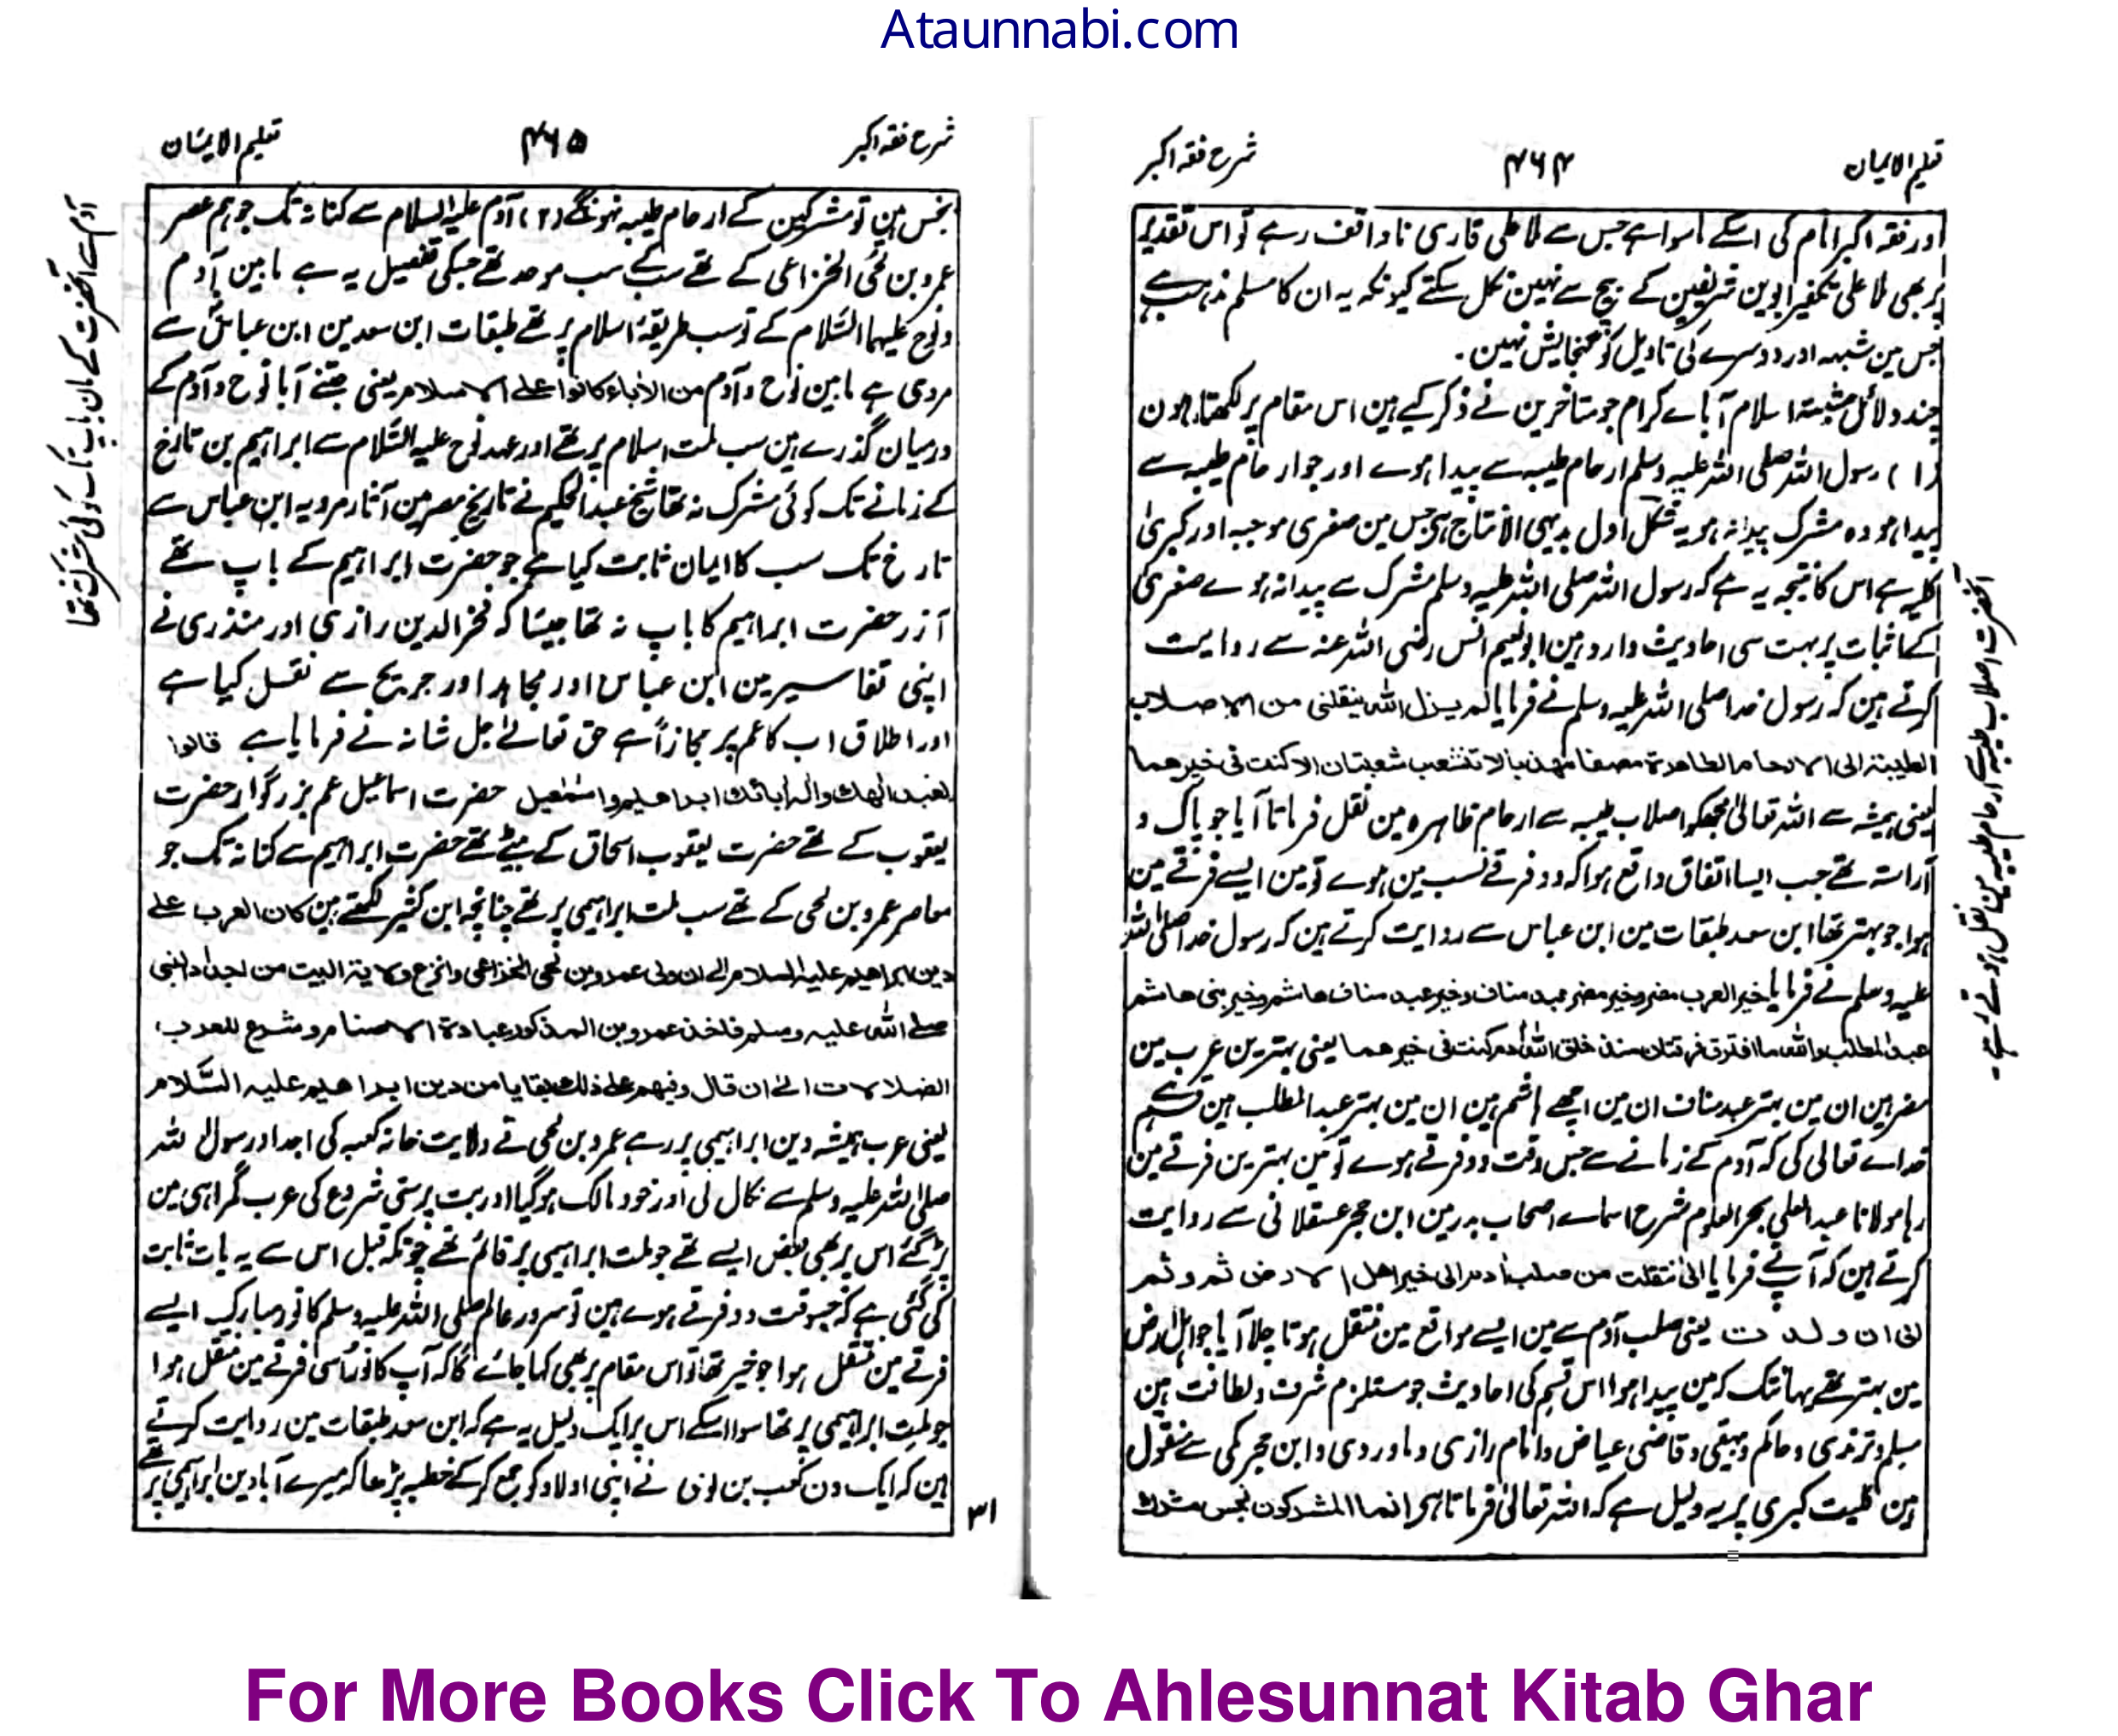 Ataunnabi.com
تعلیم الایمان
۴۶۴
شرح فقہ اکبر
اور فقہ اکبر امام کی اسکے ماسوا ہے جس سے ملا علی قاری ناواقف رہے تو اس تقدیر
پر بھی ملا علی تکفیر ابوین شریفین کے پیچ سے نہین نکل سکتے کیونکہ یہ ان کا مسلم مذہب ہے
جس مین شبہہ اور دوسرے کی تاویل کو گنجایش نہین۔
چند دلائل مثبتہ اسلام آباے کرام جو متاخرین نے ذکر کیے ہین اس مقام پر لکھتا ہون
(۱) رسول اللہ صلی اللہ علیہ وسلم ارحام طیبہ سے پیدا ہوے اور جو ارحام طیبہ سے
پیدا ہو وہ مشرک پیدا نہ ہو یہ شکل اول بدیہی الانتاج ہی جس مین صغری موجبہ اور کبریٰ
کلیہ ہے اس کا نتیجہ یہ ہے کہ رسول اللہ صلی اللہ علیہ وسلم مشرک سے پیدا نہ ہوے صغریٰ
کے اثبات پر بہت سی احادیث وارد ہین ابو نعیم انس رضی اللہ عنہ سے روایت
کرتے ہین کہ رسول خدا صلی اللہ علیہ وسلم نے فرمایا لم یزل اللہ ینقلنی من الاصلاب
الطیبۃ الی الارحام الطاھرۃ مصفا مھذبا لا تنشعب شعبتان الا کنت فی خیرھما
یعنی ہمیشہ سے اللہ تعالیٰ مجھکو اصلاب طیبہ سے ارحام طاہرہ مین نقل فرماتا آیا جو پاک و
آراستہ تھے جب ایسا اتفاق واقع ہوا کہ دو فرقے نسب مین ہوے تو مین ایسے فرقے مین
ہوا جو بہتر تھا ابن سعد طبقات مین ابن عباس سے روایت کرتے ہین کہ رسول خدا صلی اللہ
علیہ وسلم نے فرمایا خیر العرب مضر وخیر مضر عبد مناف وخیر عبد مناف ھاشم وخیر بنی ھاشم
عبد المطلب واللہ ما افترق فرقتان منذ خلق اللہ آدم کنت فی خیرھما یعنی بہترین عرب مین
مضر ہین ان مین بہتر عبد مناف ان مین اچھے ہاشم ہین ان مین بہتر عبد المطلب ہین قسم ہے
خداے تعالی کی کہ آدم کے زمانے سے جس وقت دو فرقے ہوے تو مین بہترین فرقے مین
رہا مولانا عبد العلی بحر العلوم شرح اسماے اصحاب بدر مین ابن حجر عسقلانی سے روایت
کرتے ہین کہ آپ نے فرمایا انی انتقلت من صلب آدم الی خیر اھل الارض ثم و ثم
الی ان ولدت یعنی صلب آدم سے مین ایسے مواقع مین منتقل ہوتا چلا آیا جو اہل ارض
مین بہتر تھے یہانتک کہ مین پیدا ہوا اس قسم کی احادیث جو مستلزم شرف و لطافت ہین
مسلم و ترمذی و حاکم و بیہقی و قاضی عیاض و امام رازی و ماوردی و ابن حجر مکی سے منقول
ہین کلیت کبری پر یہ دلیل ہے کہ اللہ تعالیٰ فرماتا ہی انما المشرکون نجس مشرک
آنحضرت اصلاب طیبہ سے ارحام طیبہ مین نقل ہوتے رہے۔
شرح فقہ اکبر
۴۶۵
تعلیم الایمان
نجس ہین تو مشرکین کے ارحام طیبہ نہونگے (۲) آدم علیہ السلام سے کنانہ تک جو ہم عصر
عمرو بن لحی الخزاعی کے تھے سب کے سب موحد تھے جسکی تفصیل یہ ہے مابین آدم
و نوح علیہما السلام کے تو سب طریقۂ اسلام پر تھے طبقات ابن سعد مین ابن عباس سے
مروی ہے مابین نوح و آدم من الاباء کانوا علی الاسلام یعنی جتنے آبا نوح و آدم کے
درمیان گذرے ہین سب ملت اسلام پر تھے اور عہد نوح علیہ السلام سے ابراہیم بن تارخ
کے زمانے تک کوئی مشرک نہ تھا شیخ عبد الحکیم نے تاریخ مصر مین آثار مرویہ ابن عباس سے
تارخ تک سب کا ایمان ثابت کیا ہے جو حضرت ابراہیم کے باپ تھے
آزر حضرت ابراہیم کا باپ نہ تھا جیسا کہ فخر الدین رازی اور منذری نے
اپنی تفاسیر مین ابن عباس اور مجاہد اور جریج سے نقل کیا ہے
اور اطلاق اب کا عم پر مجازاً ہے حق تعالیٰ جل شانہ نے فرمایا ہے قالوا
نعبد الھک والہ ابائک ابراھیم واسمٰعیل حضرت اسماعیل عم بزرگوار حضرت
یعقوب کے تھے حضرت یعقوب اسحاق کے بیٹے تھے حضرت ابراہیم سے کنانہ تک جو
معاصر عمرو بن لحی کے تھے سب ملت ابراہیمی پر تھے چنانچہ ابن کثیر لکھتے ہین کان العرب علی
دین ابراھیم علیہ السلام الی ان ولی عمرو بن لحی الخزاعی وانزع ولایۃ البیت من اجداد النبی
صلی اللہ علیہ وسلم فاخذ عمرو بن المذکور عبادۃ الاصنام وشرع للعرب
الضلالات الی ان قال وفیھم علی ذلک بقایا من دین ابراھیم علیہ السلام
یعنی عرب ہمیشہ دین ابراہیمی پر رہے عمرو بن لحی نے ولایت خانہ کعبہ کی اجداد رسول اللہ
صلی اللہ علیہ وسلم سے نکال لی اور خود مالک ہوگیا اور بت پرستی شروع کی عرب گمراہی مین
پڑ گئے اس پر بھی بعض ایسے تھے جو ملت ابراہیمی پر قائم تھے چونکہ قبل اس سے یہ بات ثابت
کی گئی ہے کہ جسوقت دو فرقے ہوے ہین تو سرور عالم صلی اللہ علیہ وسلم کا نور مبارک ایسے
فرقے مین منتقل ہوا جو خیر تھا تو اس مقام پر بھی کہا جائے گا کہ آپ کا نور اسی فرقے مین منتقل ہوا
جو ملت ابراہیمی پر تھا سوا اسکے اس پر ایک دلیل یہ ہے کہ ابن سعد طبقات مین روایت کرتے
ہین کہ ایک دن کعب بن لوی نے اپنی اولاد کو جمع کر کے خطبہ پڑھا کہ میرے آبا دین ابراہیمی پر تھے
آدم سے آنحضرت کے مان باپ تک کوئی مشرک نتھا
۳۱
For More Books Click To Ahlesunnat Kitab Ghar